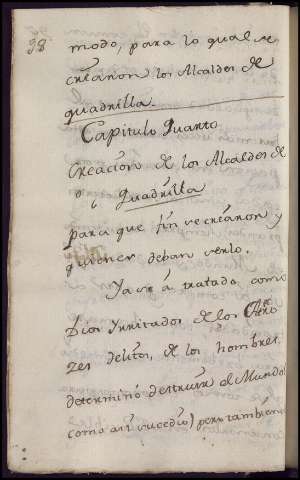 98
modo, para lo qual se
crearon los Alcaldes de
quadrilla
Capitulo Quarto
Creacion de los Alcaldes de
Quadrilla
para que fin se crearon y
quienes deban serlo.
Ya se á tratado, como
Dios yrritados de los
delitos, de los hombres
determinó destruir el Mundo
como así sucedio) pero tambien